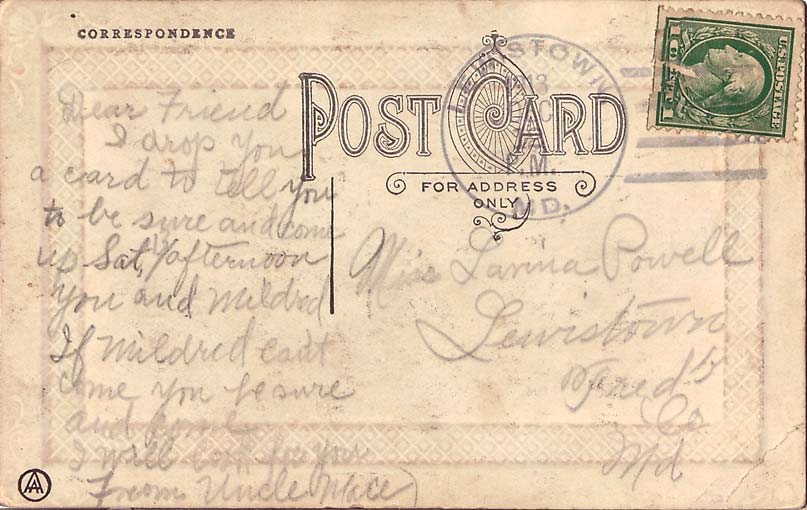 CORRESPONDENCE
Dear Friend
I drop you
a card to tell you
to be sure and come
up Sat, afternoon
you and Mildred
If Mildred cant
come you be sure
and come
I will look for you
From Uncle
POST CARD
FOR ADDRESS
ONLY
STOWN
P.M.
MD.
U.S. POSTAGE
Miss Lavina Powell
Lewistown
Fred
Co
Md
AA